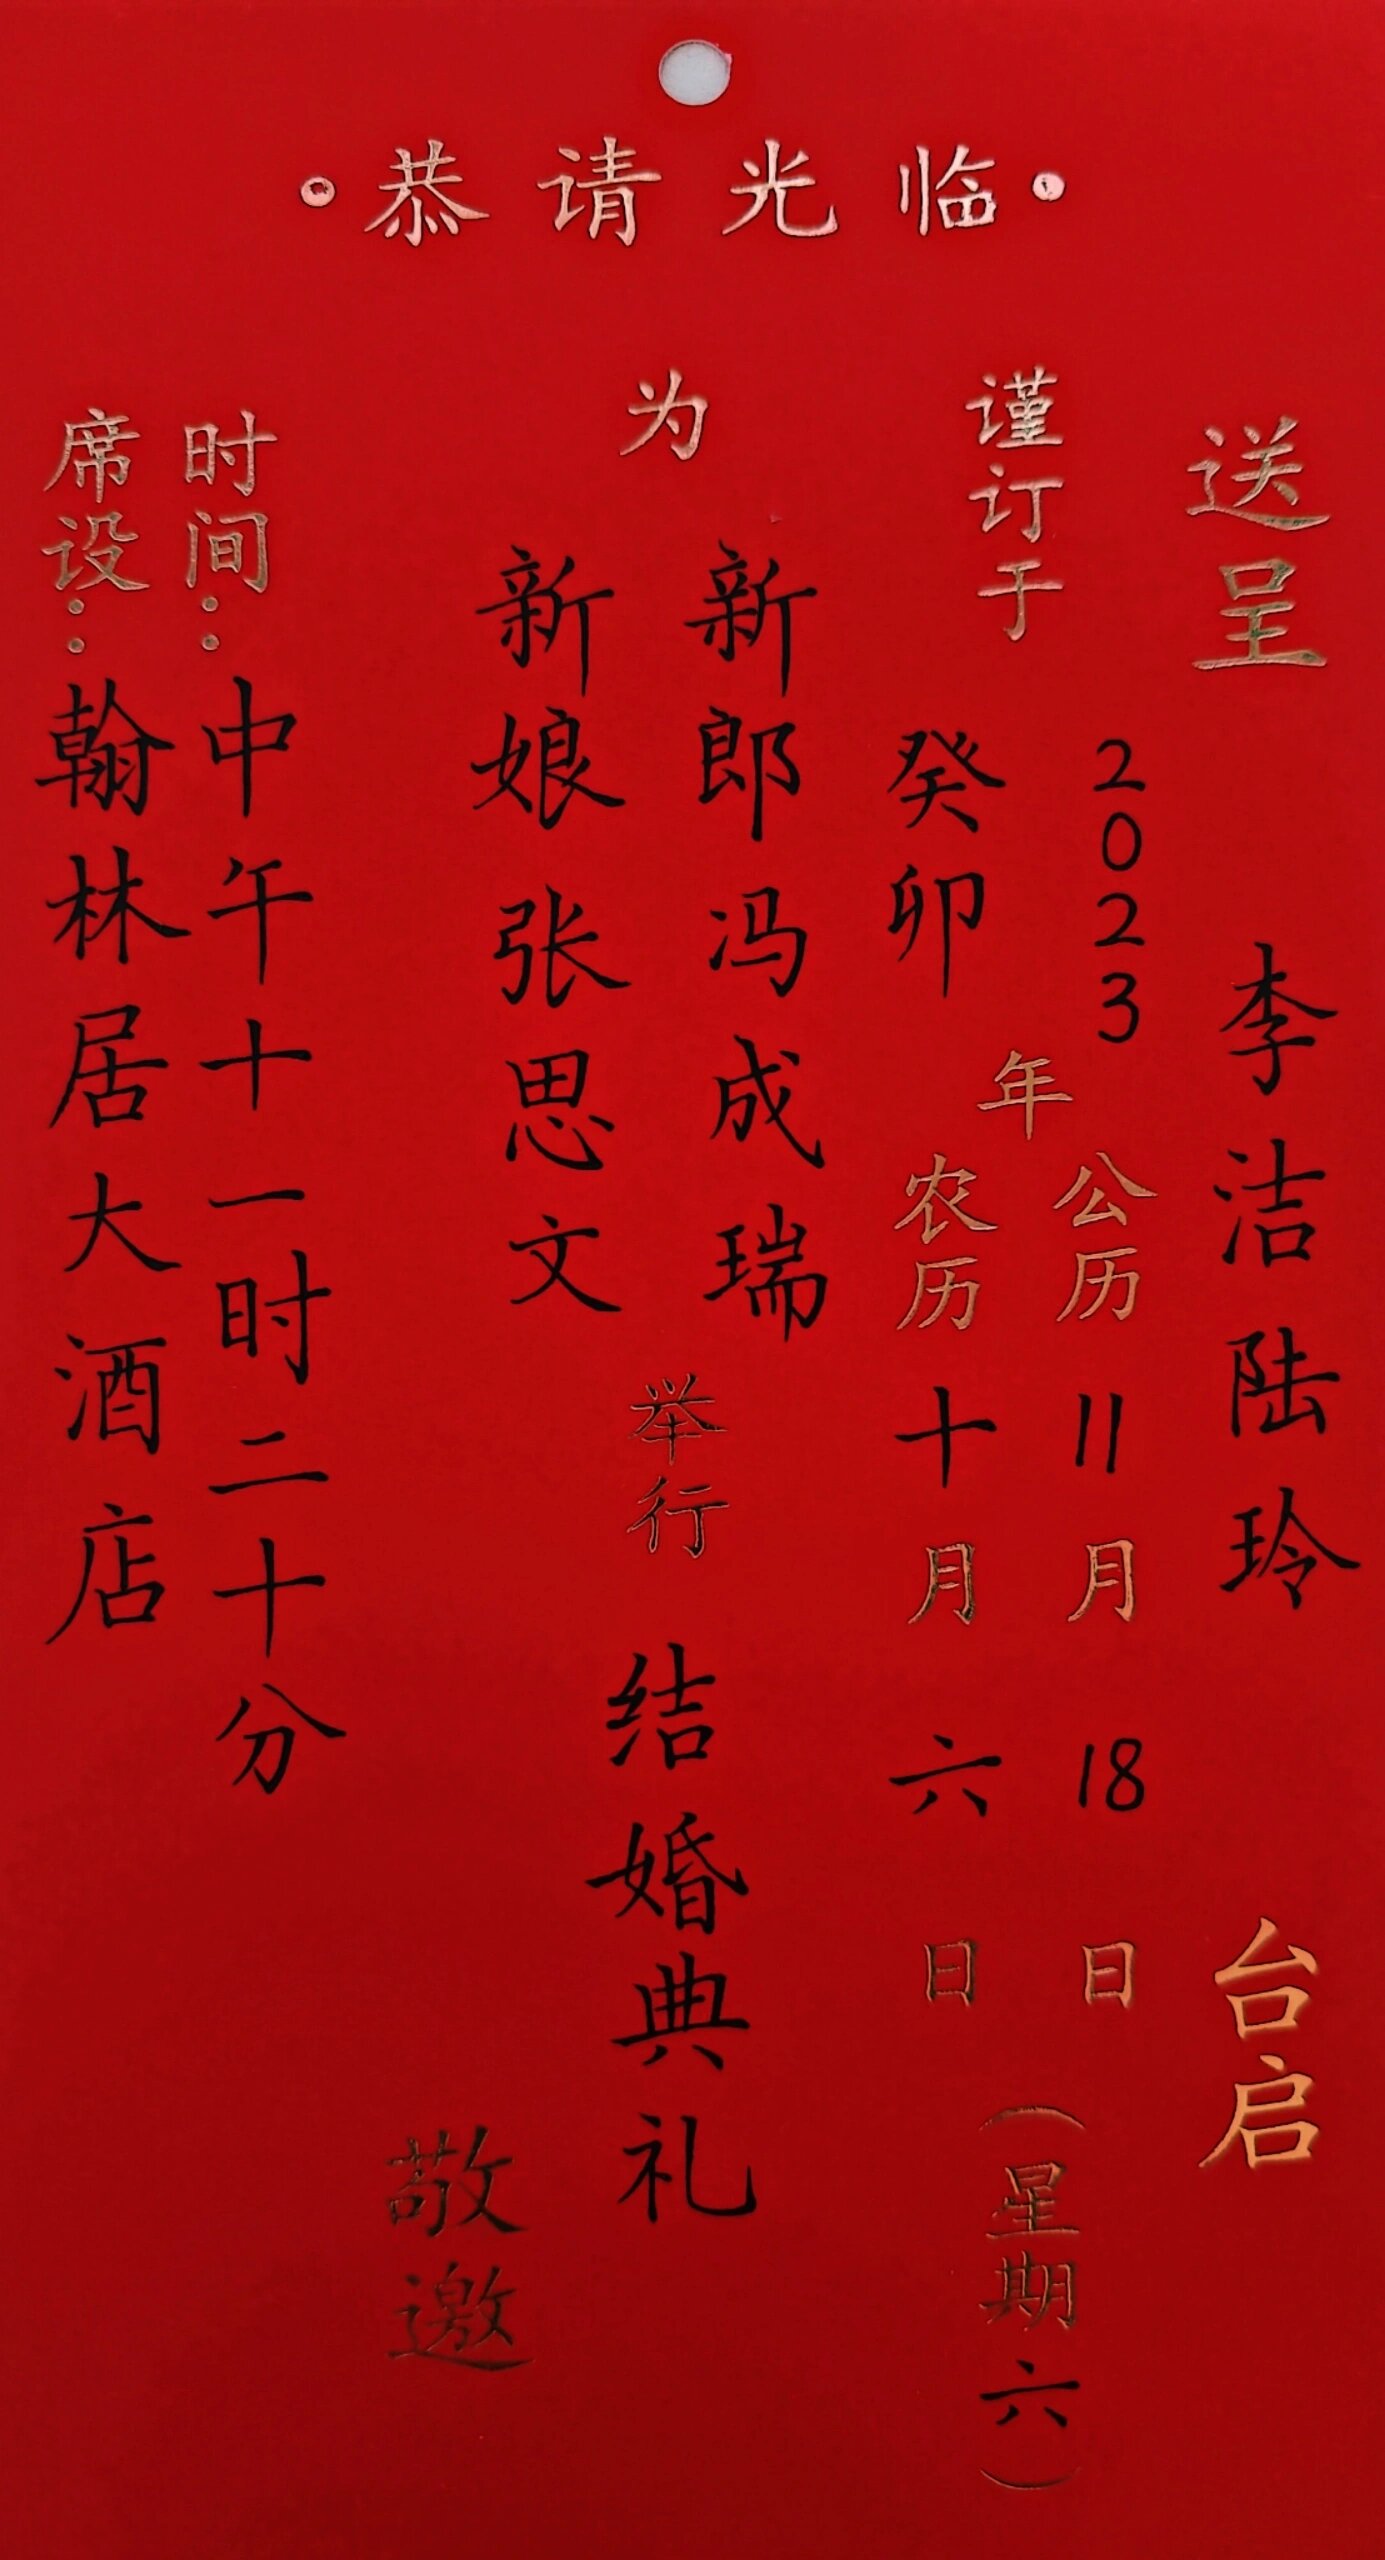 ·恭请光临·
送呈 李洁 陆玲 台启
谨订于
2023
癸卯
年
公历 11月18日
农历 十月六日
(星期六)
为
新郎冯成瑞
新娘张思文
举行
结婚典礼
敬邀
时间：中午十一时二十分
席设：翰林居大酒店